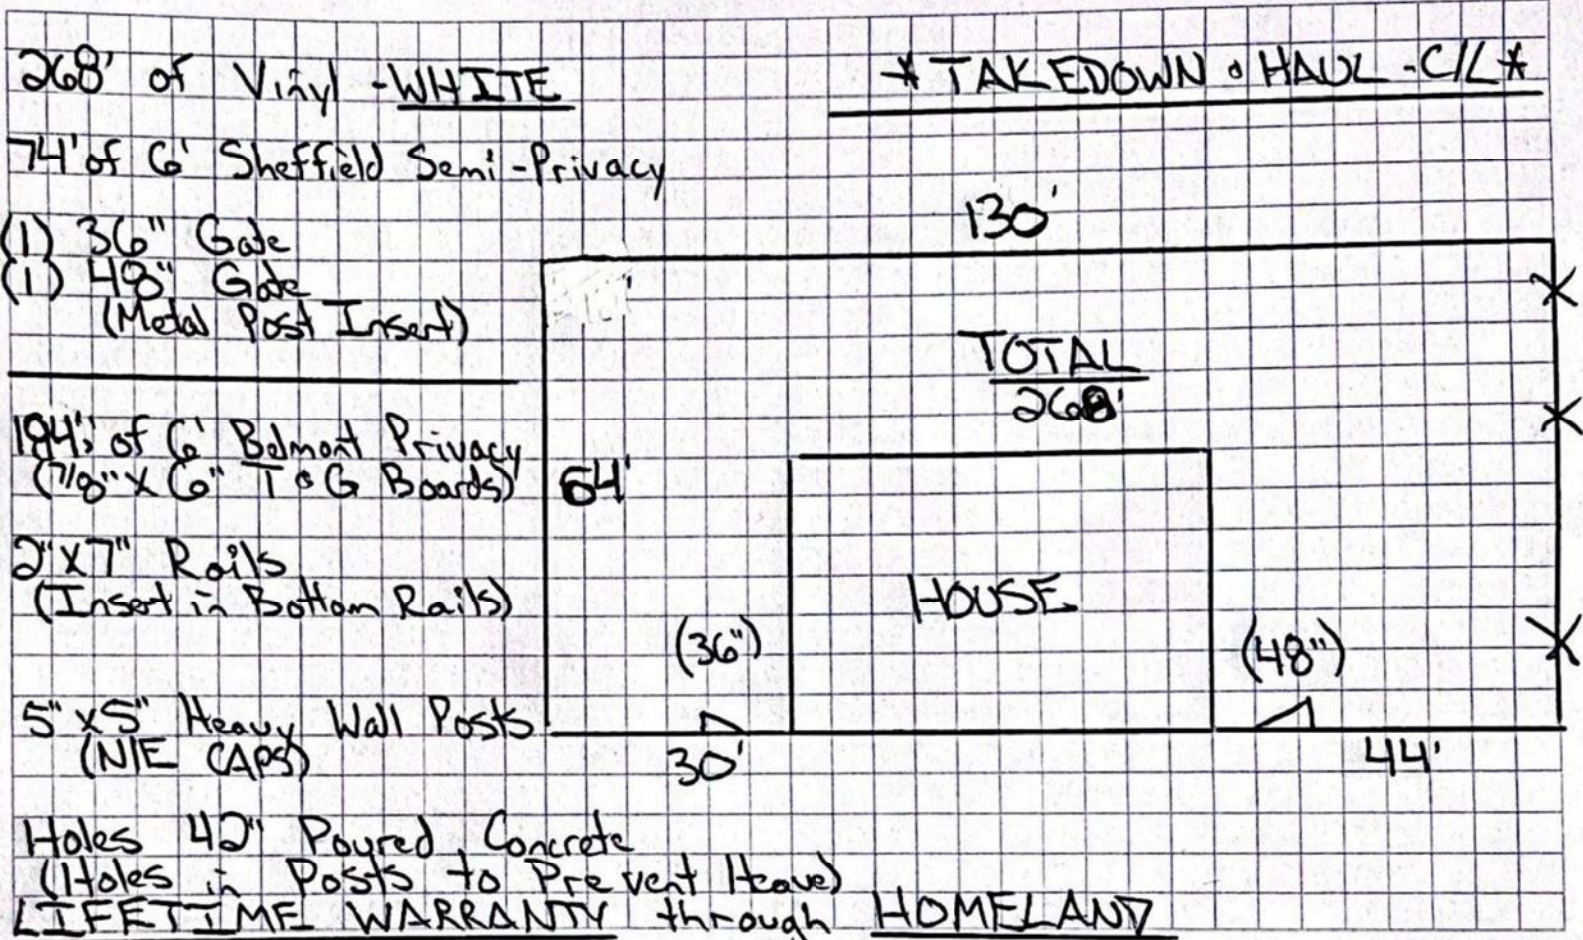 268' of Vinyl - WHITE
* TAKEDOWN & HAUL - C/L *
74' of 6' Sheffield Semi-Privacy
(1) 36" Gate
(1) 48" Gate
(Metal Post Insert)
194' of 6' Belmont Privacy
(7/8" x 6" T & G Boards)
2" x 7" Rails
(Insert in Bottom Rails)
5" x 5" Heavy Wall Posts
(N/E CAPS)
Holes 42" Poured Concrete
(Holes in Posts to Prevent Heave)
LIFETIME WARRANTY through HOMELAND
130'
TOTAL
268'
64'
HOUSE
(36")
(48")
30'
44'